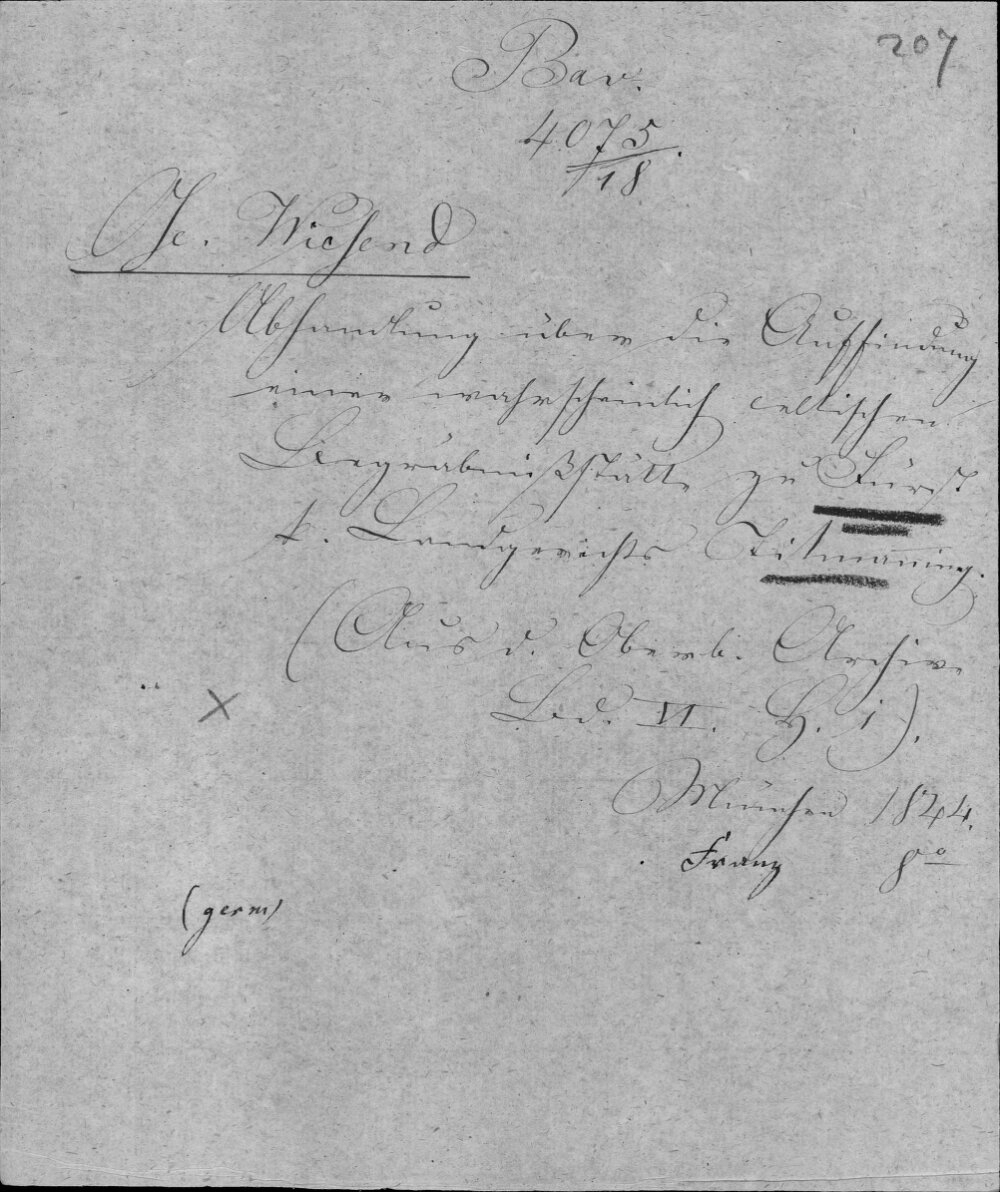 207
Bav.
4075/18.
G. Wiesend
Abhandlung über die Auffindung
einer wahrscheinlich celtischen
Begräbnißstätte zu Fürst
k. Landgerichts Titmanning.
(Aus d. Oberb. Archive
Bd. VI. H. 1).
München 1844.
Franz 8º
(germ)